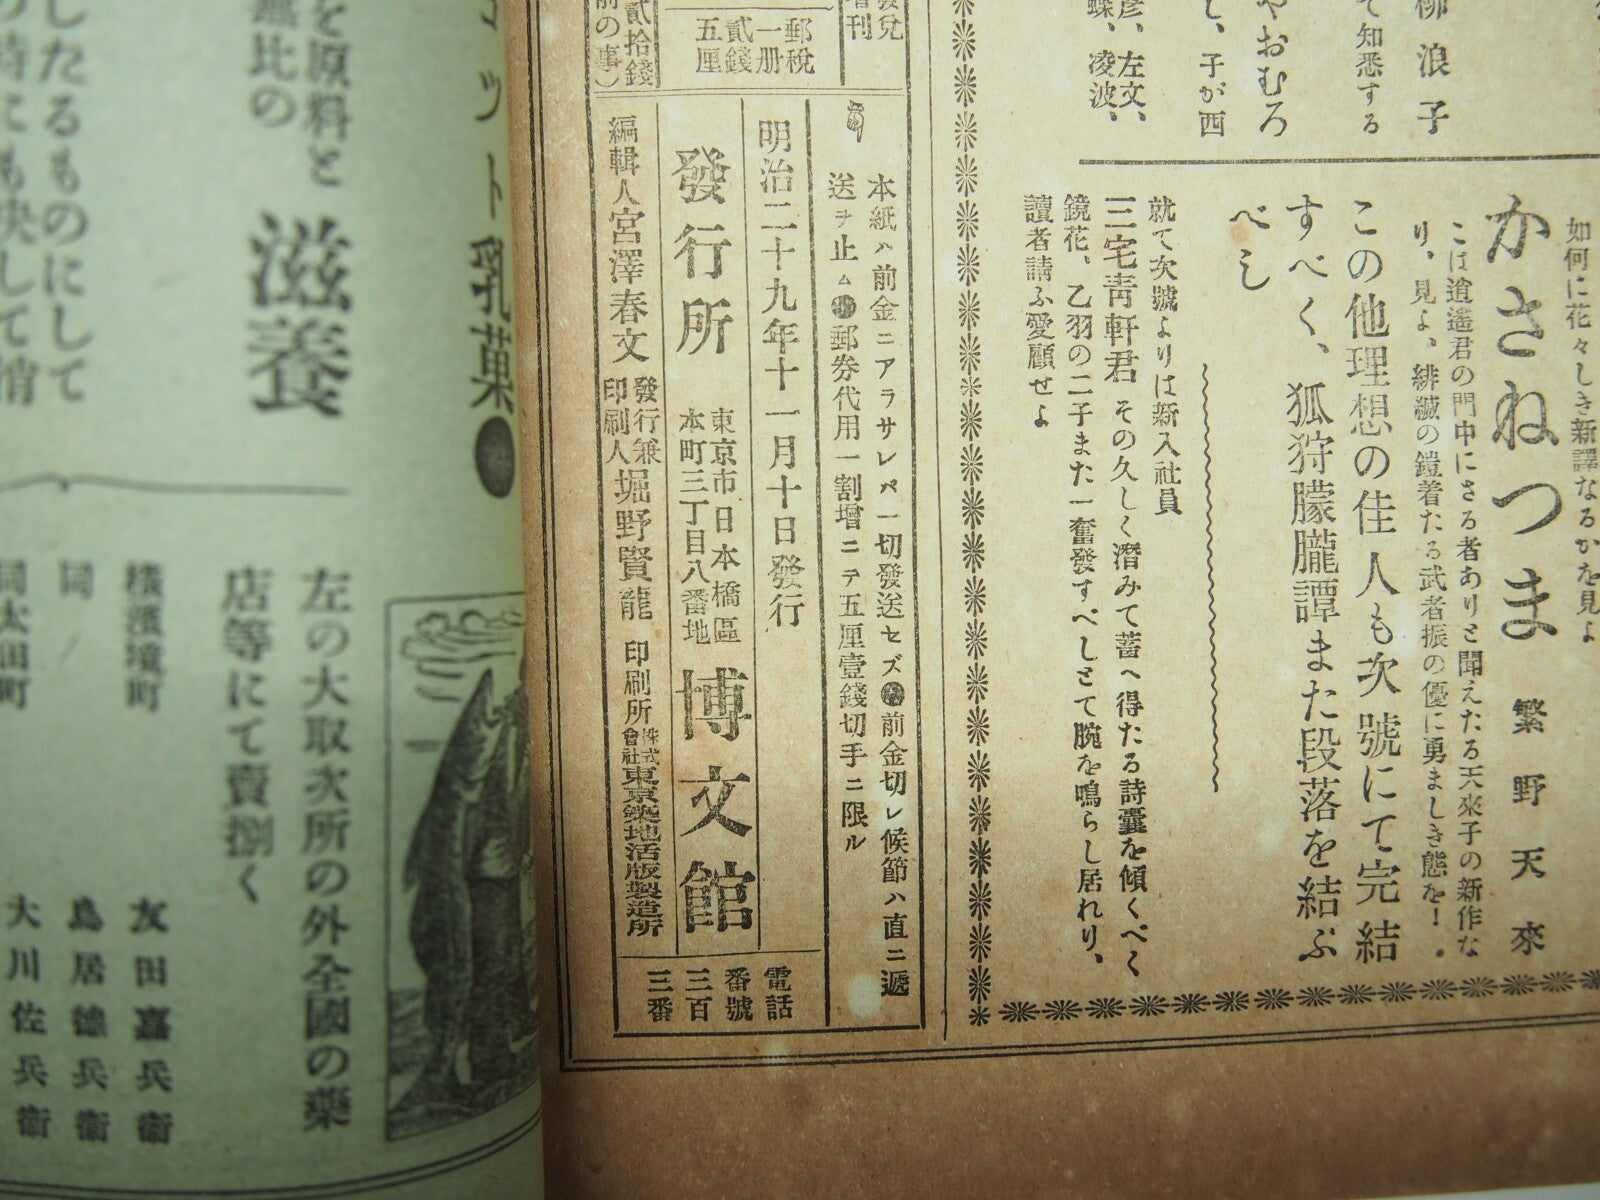 柳浪子
て知悉する
やおむろ
し、子が西
彦、左文、
蝶、凌波、
如何に花々しき新譯なるかを見よ
かさねつま
繁野天來
こは逍遙君の門中にさる者ありと聞えたる天來子の新作な
り、見よ、緋縅の鎧着たる武者振の優に勇ましき態を！
この他理想の佳人も次號にて完結
すべく、狐狩朦朧譚また段落を結ぶ
べし
就て次號よりは新入社員
三宅靑軒君その久しく潛みて蓄へ得たる詩囊を傾くべく
鏡花、乙羽の二子また一奮發すべしとて腕を鳴らし居れり、
讀者請ふ愛顧せよ
發兌
增刊
郵稅
一册
貳錢
五厘
貳拾錢
前の事）
本紙ハ前金ニアラサレバ一切發送セズ●前金切レ候節ハ直ニ遞
送ヲ止ム●郵券代用一割增ニテ五厘壹錢切手ニ限ル
明治二十九年十一月十日發行
發行所
東京市日本橋區
本町三丁目八番地
博文館
編輯人宮澤春文
發行兼
印刷人
堀野賢龍
印刷所
株式
會社
東京築地活版製造所
電話
番號
三百
三番
コット乳菓
を原料と
無比の
滋養
したるものにして
時にも決して消
左の大取次所の外全國の藥
店等にて賣捌く
橫濱境町
友田嘉兵衞
同
鳥居德兵衞
同太田町
大川佐兵衞